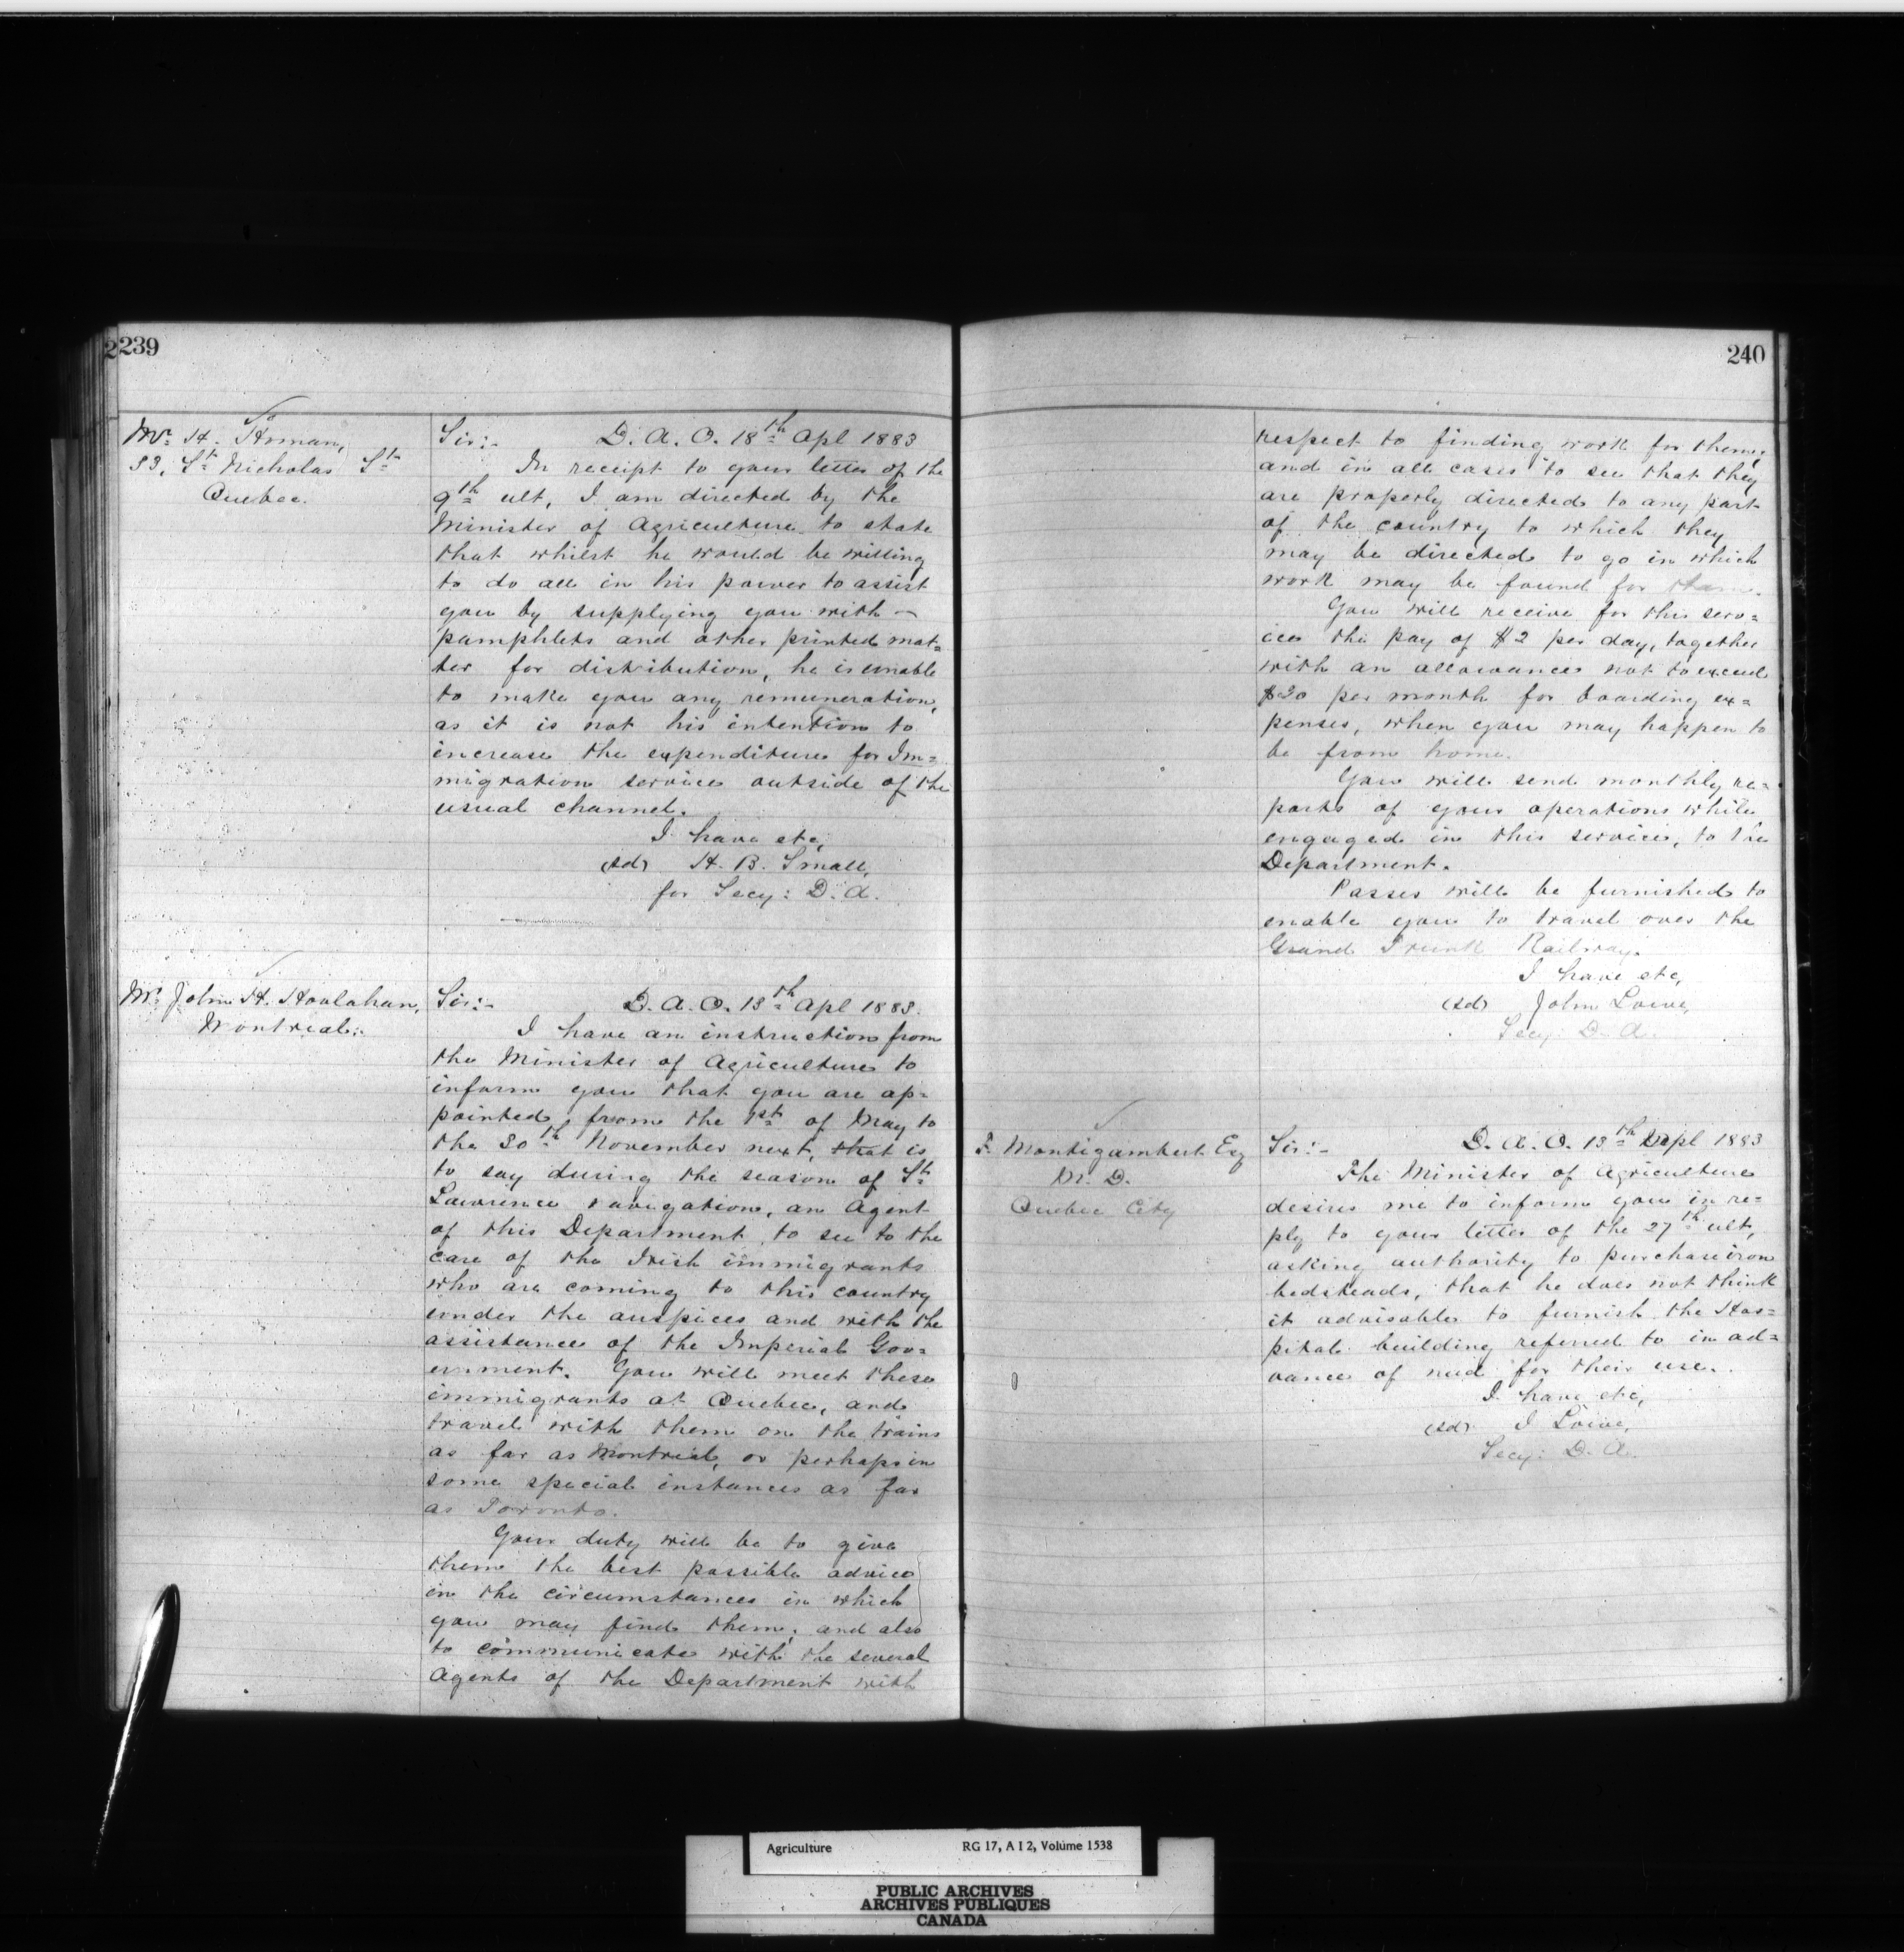 239
Mr. H. Homan,
33, St. Nicholas St.
Quebec.
Sir:- D. A. O. 18th Apl 1883
In receipt to your letter of the
9th ult, I am directed by the
Minister of Agriculture to state
that whilst he would be willing
to do all in his power to assist
you by supplying you with
pamphlets and other printed mat=
ter for distribution, he is unable
to make you any remuneration,
as it is not his intention to
increase the expenditure for Im=
migration service outside of the
usual channel.
I have etc,
(sd) H. B. Small,
for Secy: D. A.
Mr. John H. Houlahan,
Montreal.
Sir:- D. A. O. 13th Apl 1883.
I have an instruction from
the Minister of Agriculture to
inform you that you are ap=
pointed, from the 1st of May to
the 30th November next, that is
to say during the season of St.
Lawrence navigation, an Agent
of this Department, to see to the
care of the Irish immigrants
who are coming to this country
under the auspices and with the
assistance of the Imperial Gov=
ernment. You will meet these
immigrants at Quebec, and
travel with them on the trains
as far as Montreal, or perhaps in
some special instances as far
as Toronto.
Your duty will be to give
them the best possible advice
in the circumstances in which
you may find them; and also
to communicate with the several
Agents of the Department with
240
respect to finding work for them;
and in all cases to see that they
are properly directed to any part
of the country to which they
may be directed to go in which
work may be found for them.
You will receive for this serv=
ice the pay of $2 per day, together
with an allowance not to exceed
$20 per month for boarding ex=
penses, when you may happen to
be from home.
You will send monthly re=
ports of your operations while
engaged in this service, to the
Department.
Passes will be furnished to
enable you to travel over the
Grand Trunk Railway.
I have etc,
(sd) John Lowe,
Secy: D. A.
F. Montizambert Esq
M. D.
Quebec City
Sir:- D. A. O. 13th Apl 1883
The Minister of Agriculture
desires me to inform you in re=
ply to your letter of the 27th ult,
asking authority to purchase iron
bedsteads, that he does not think
it advisable to furnish the Hos=
pital building referred to in ad=
vance of need for their use.
I have etc,
(sd) J Lowe,
Secy: D. A.
Agriculture RG 17, A I 2, Volume 1538
PUBLIC ARCHIVES
ARCHIVES PUBLIQUES
CANADA